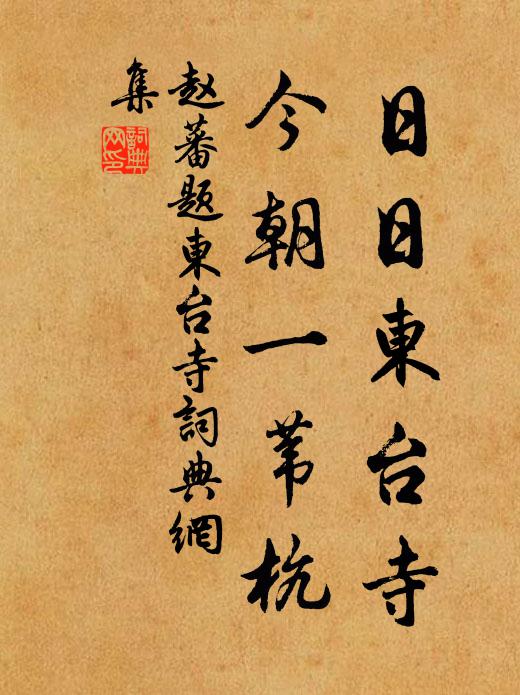 日日東台寺
今朝一苇杭
赵蕃题東台寺詞典網
集
詞典
网印